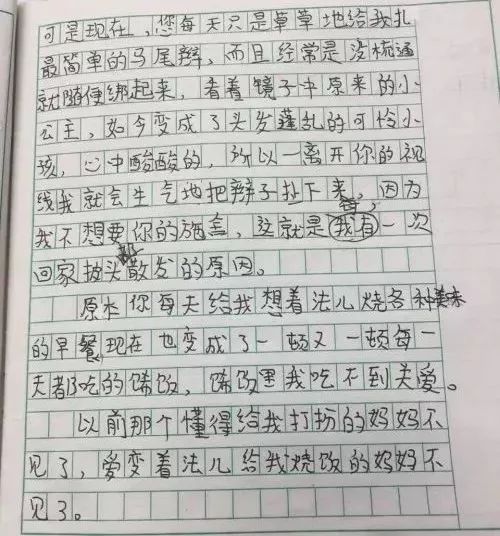 可是现在，您每天只是草草地给我扎
最简单的马尾辫，而且经常是没梳通
就随便绑起来，看着镜子中原来的小
公主，如今变成了头发蓬乱的可怜小
孩，心中酸酸的，所以一离开你的视
线我就会生气地把辫子扯下来，因为
我不想要你的施舍，这就是我有一次
回家披头散发的原因。
原本你每天给我想着法儿烧各种美味
的早餐现在也变成了一顿又一顿每一
天都吃的馊饭，馊饭里我吃不到关爱。
以前那个懂得给我打扮的妈妈不
见了，爱变着法儿给我烧饭的妈妈不
见了。